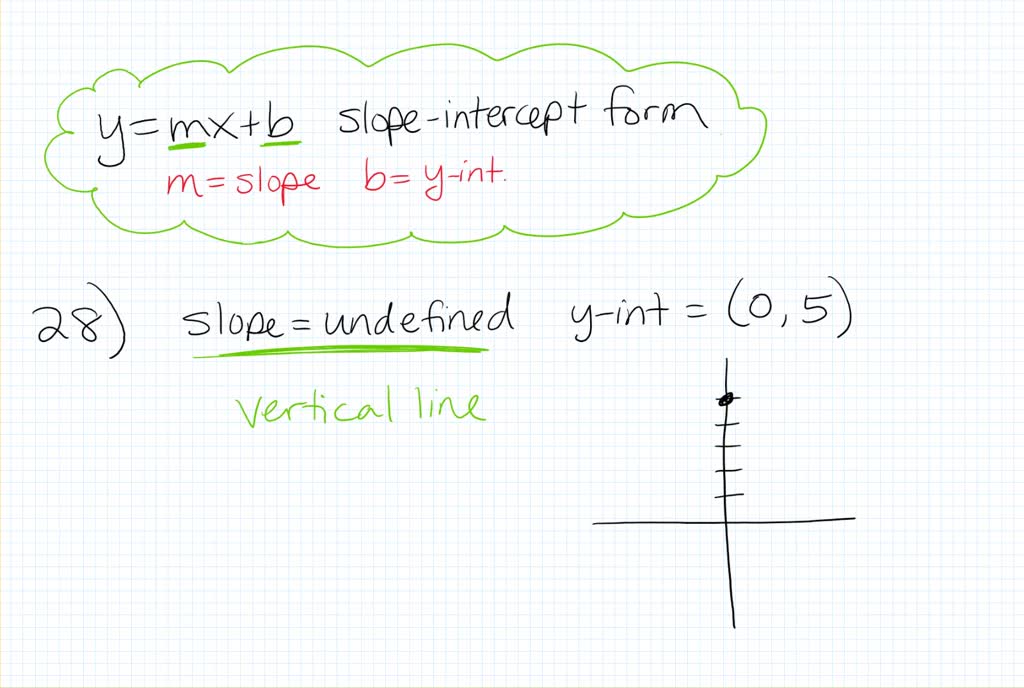 y=mx+b slope-intercept form
m=slope b= y-int.
28) slope=undefined y-int = (0,5)
vertical line